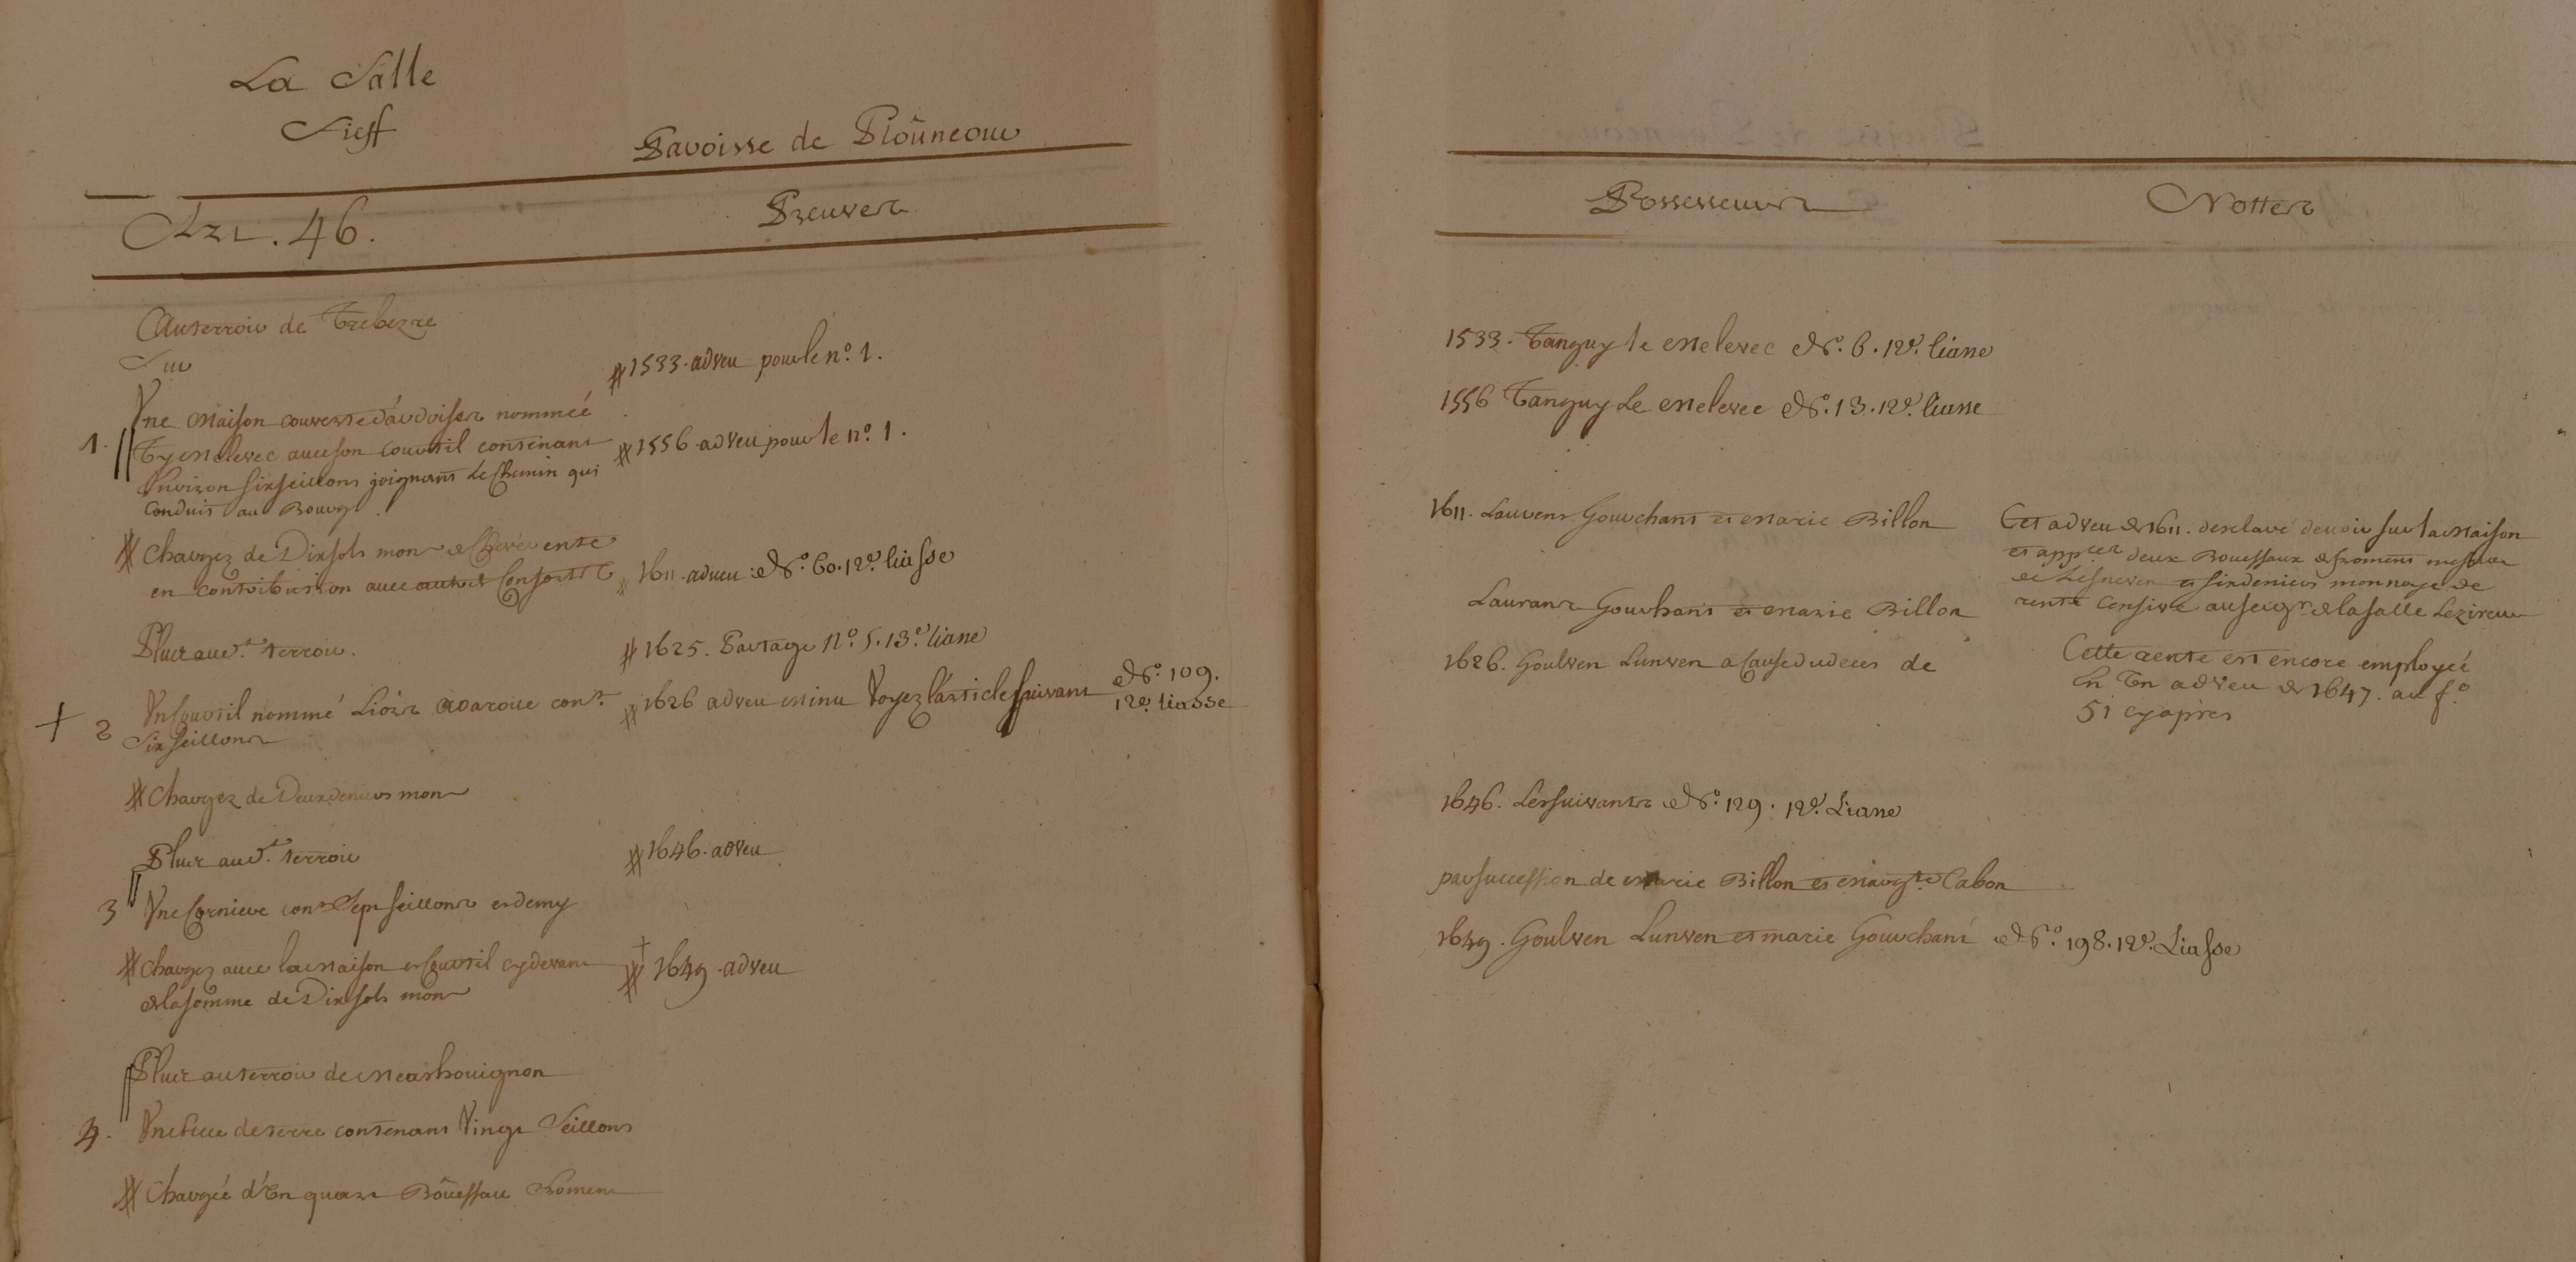 La Salle
Fieff
Paroisse de Ploüneour
Art. 46.
Preuves
Au terroir de Trebezre
Sur
1. Vne Maison couverte d'ardoises nommeé
Ty Melevec auec son Courtil contenant
Envison six seillons joignant Le Chemin qui
Conduit au Bourg.
# Chargez de Dix sols mon
en contribution auec Consortz
Plus aud.t terroir.
+ 2 Vn Courtil nommé Liorz cont
Six seillons
# Chargez de Deux deniers mon
Plus aud.t terroir
3 Vne Corniere cont Sept seillons et demy
# Chargez auec la Maison et Courtil cy devant
de la somme de Dix sols mon
Plus au terroir de Meashouignon
4. Vne piece de terre contenant Vingt Seillons
# Chargeé d'En quart Bôuessau froment
# 1533. adveu pour le n.º 1.
# 1556. adveu pour le n.º 1.
# 1611. adveu. N.º 60. 12.e liasse
# 1625. Partage N.º 5. 13.e liasse
# 1626 adveu et minu Voyez l'article suivant N.º 109.
12.e liasse
# 1646. adveu
+
# 1649. adveu
Possesseurs
Nottes
1533. Tanguy le Melevec N.º 6. 12.e liasse
1556 Tanguy Le Melevec N.º 13. 12.e liasse
1611. Laurens Gourchant et Marie Billon
Laurans Gourhant et Marie Billon
1626. Goulven Lunven a Cause du deces de
1646. Les suivants N.º 129. 12.e Liasse
par succession de Marie Billon et Margte Cabon
1649. Goulven Lunven et marie Gourchant N.º 198. 12.e Liasse
Cet adveu de 1611. desclare devoir sur la Maison
et appces deux Bouessaux de froment mesure
de Lesneven et six deniers monnoye de
rente Censive au seigr de la Salle Lezireur
Cette rente est encore employeé
En En adveu de 1647. au f.º
51 cy apres